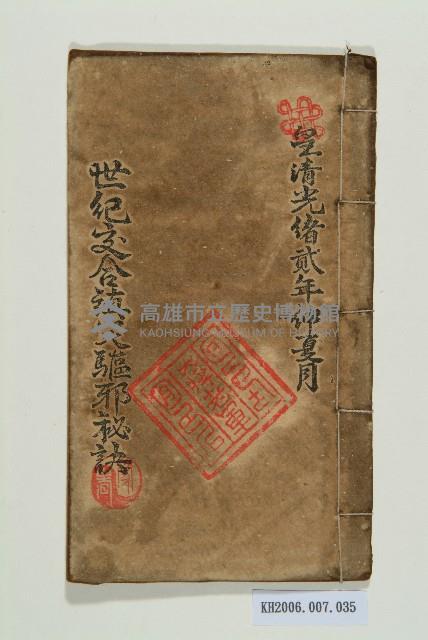 皇清光緒貳年仲夏月
世纪交合鎮宅驅邪秘訣
高雄市立歷史博物館
KAOHSIUNG MUSEUM OF HISTORY
KH2006.007.035